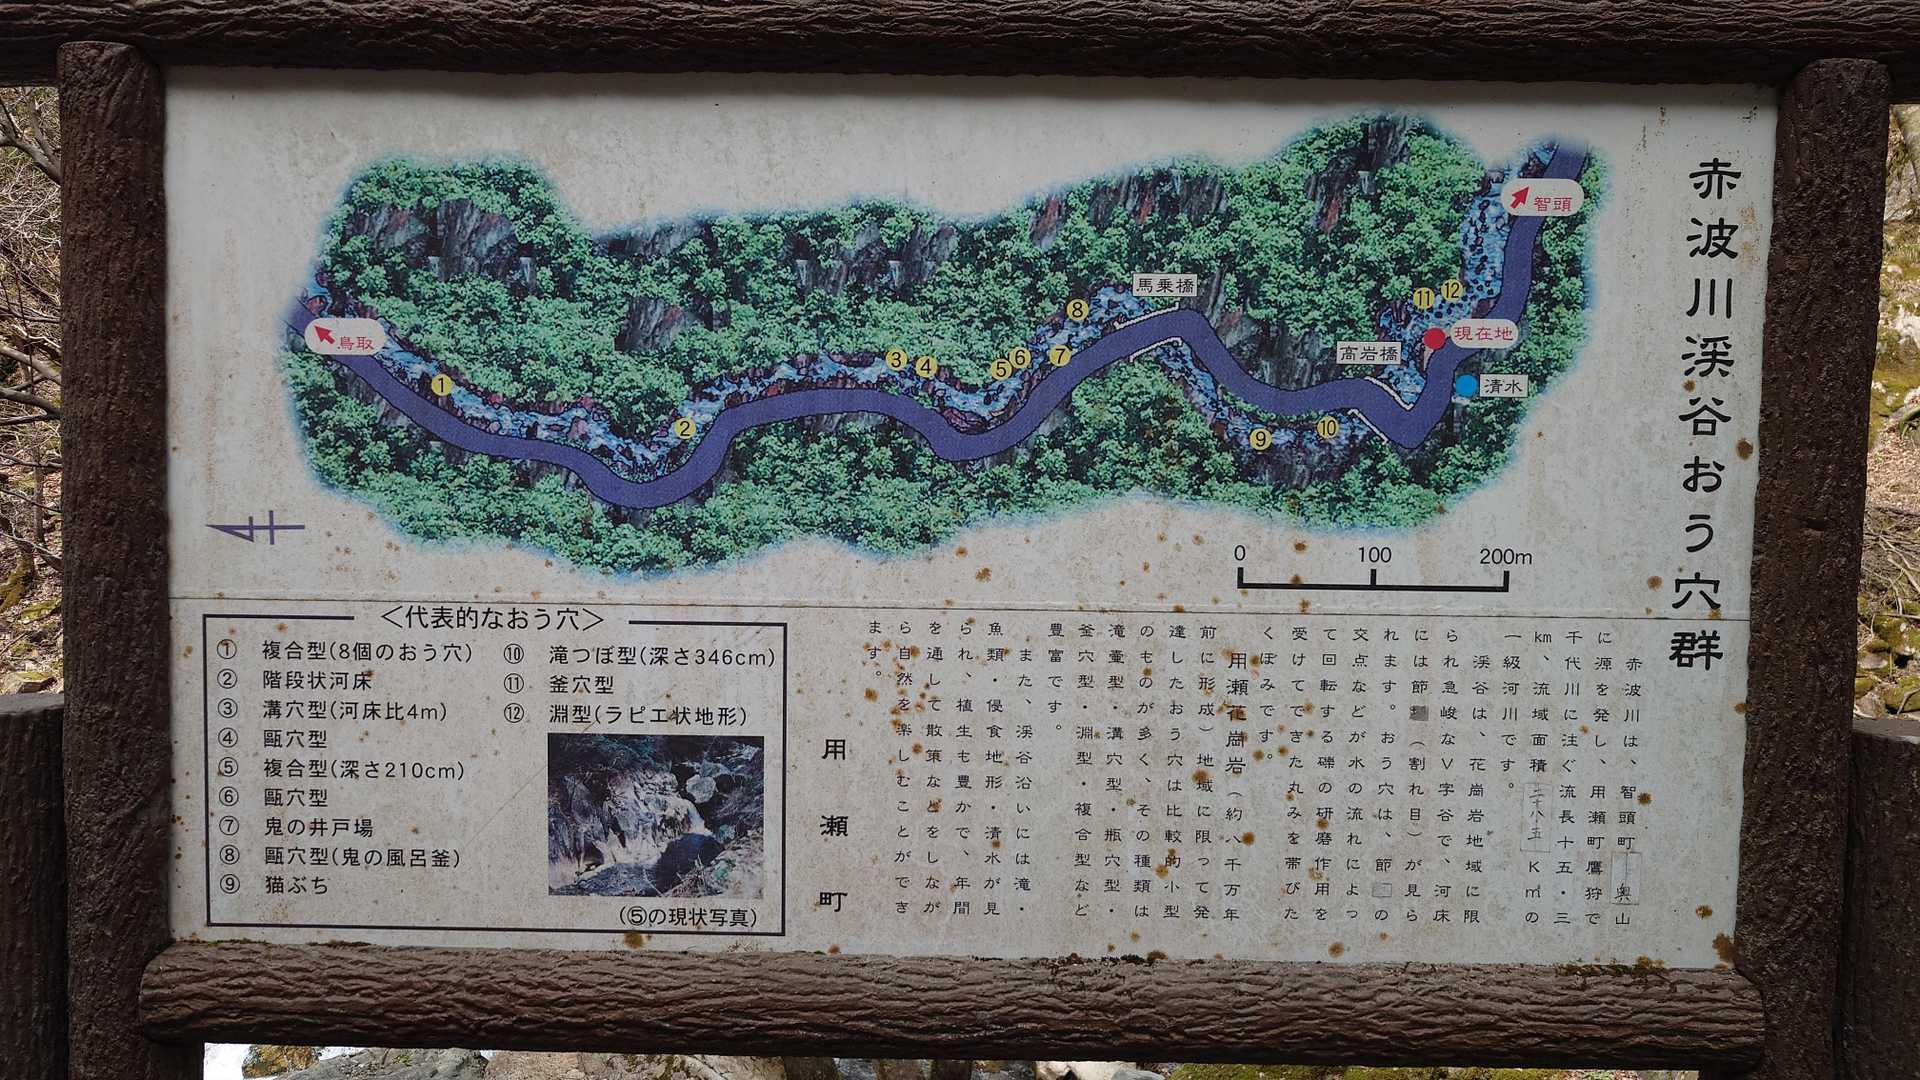 赤波川渓谷おう穴群
智頭
鳥取
馬乗橋
高岩橋
現在地
清水
①
②
③
④
⑤
⑥
⑦
⑧
⑨
⑩
⑪
⑫
0 100 200m
<代表的なおう穴>
① 複合型(8個のおう穴)
② 階段状河床
③ 溝穴型(河床比4m)
④ 甌穴型
⑤ 複合型(深さ210cm)
⑥ 甌穴型
⑦ 鬼の井戸場
⑧ 甌穴型(鬼の風呂釜)
⑨ 猫ぶち
⑩ 滝つぼ型(深さ346cm)
⑪ 釜穴型
⑫ 淵型(ラピエ状地形)
(⑤の現状写真)
赤波川は、智頭町 奥山
に源を発し、用瀬町鷹狩で
千代川に注ぐ流長十五・三
km、流域面積 K㎡の
一級河川です。
渓谷は、花崗岩地域に限
られ急峻なV字谷で、河床
には節 (割れ目)が見ら
れます。おう穴は、節 の
交点などが水の流れによっ
て回転する礫の研磨作用を
受けてできた丸みを帯びた
くぼみです。
用瀬花崗岩(約八千万年
前に形成)地域に限って発
達したおう穴は比較的小型
のものが多く、その種類は
滝壷型・溝穴型・瓶穴型・
釜穴型・淵型・複合型など
豊富です。
また、渓谷沿いには滝・
魚類・侵食地形・清水が見
られ、植生も豊かで、年間
を通して散策などをしなが
ら自然を楽しむことができ
ます。
用瀬町